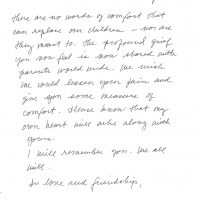 There are no words of comfort that
can replace our children - nor are
they meant to. The profound grief
you now feel is now shared with
parents world wide. We wish
we could lessen your pain and
give you some measure of
comfort. Please know that my
own heart will ache along with
yours.
I will remember you. We all
will.
In love and friendship,